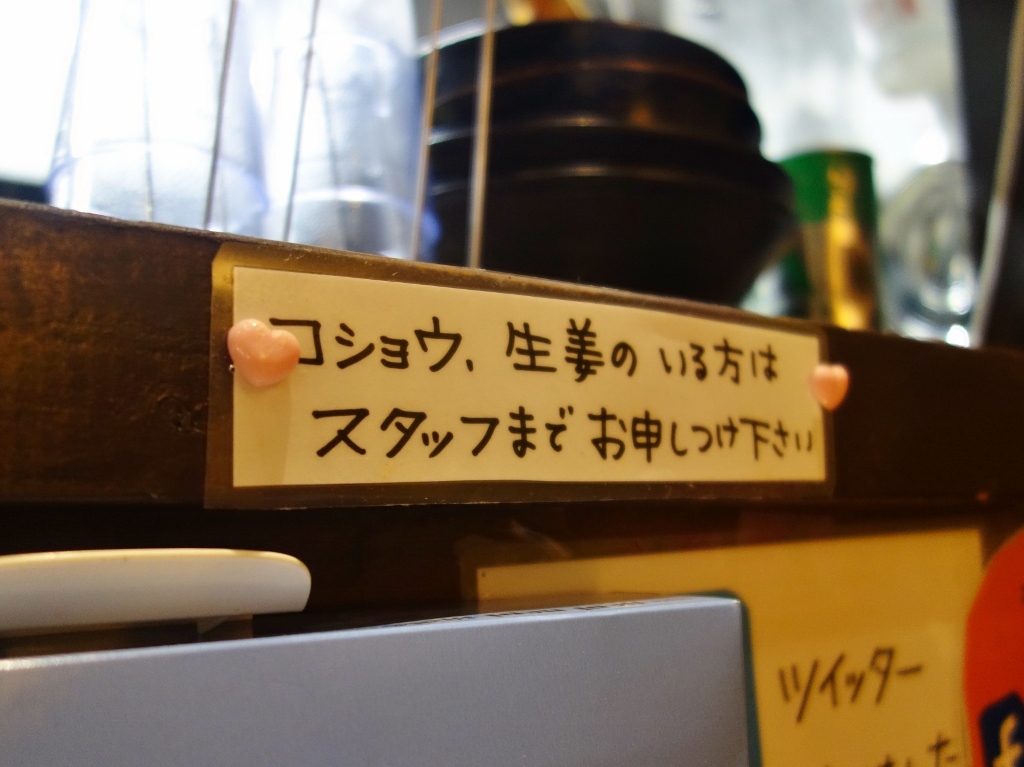 コショウ、生姜の いる方は
スタッフまで お申しつけ下さい
ツイッター
ました
f